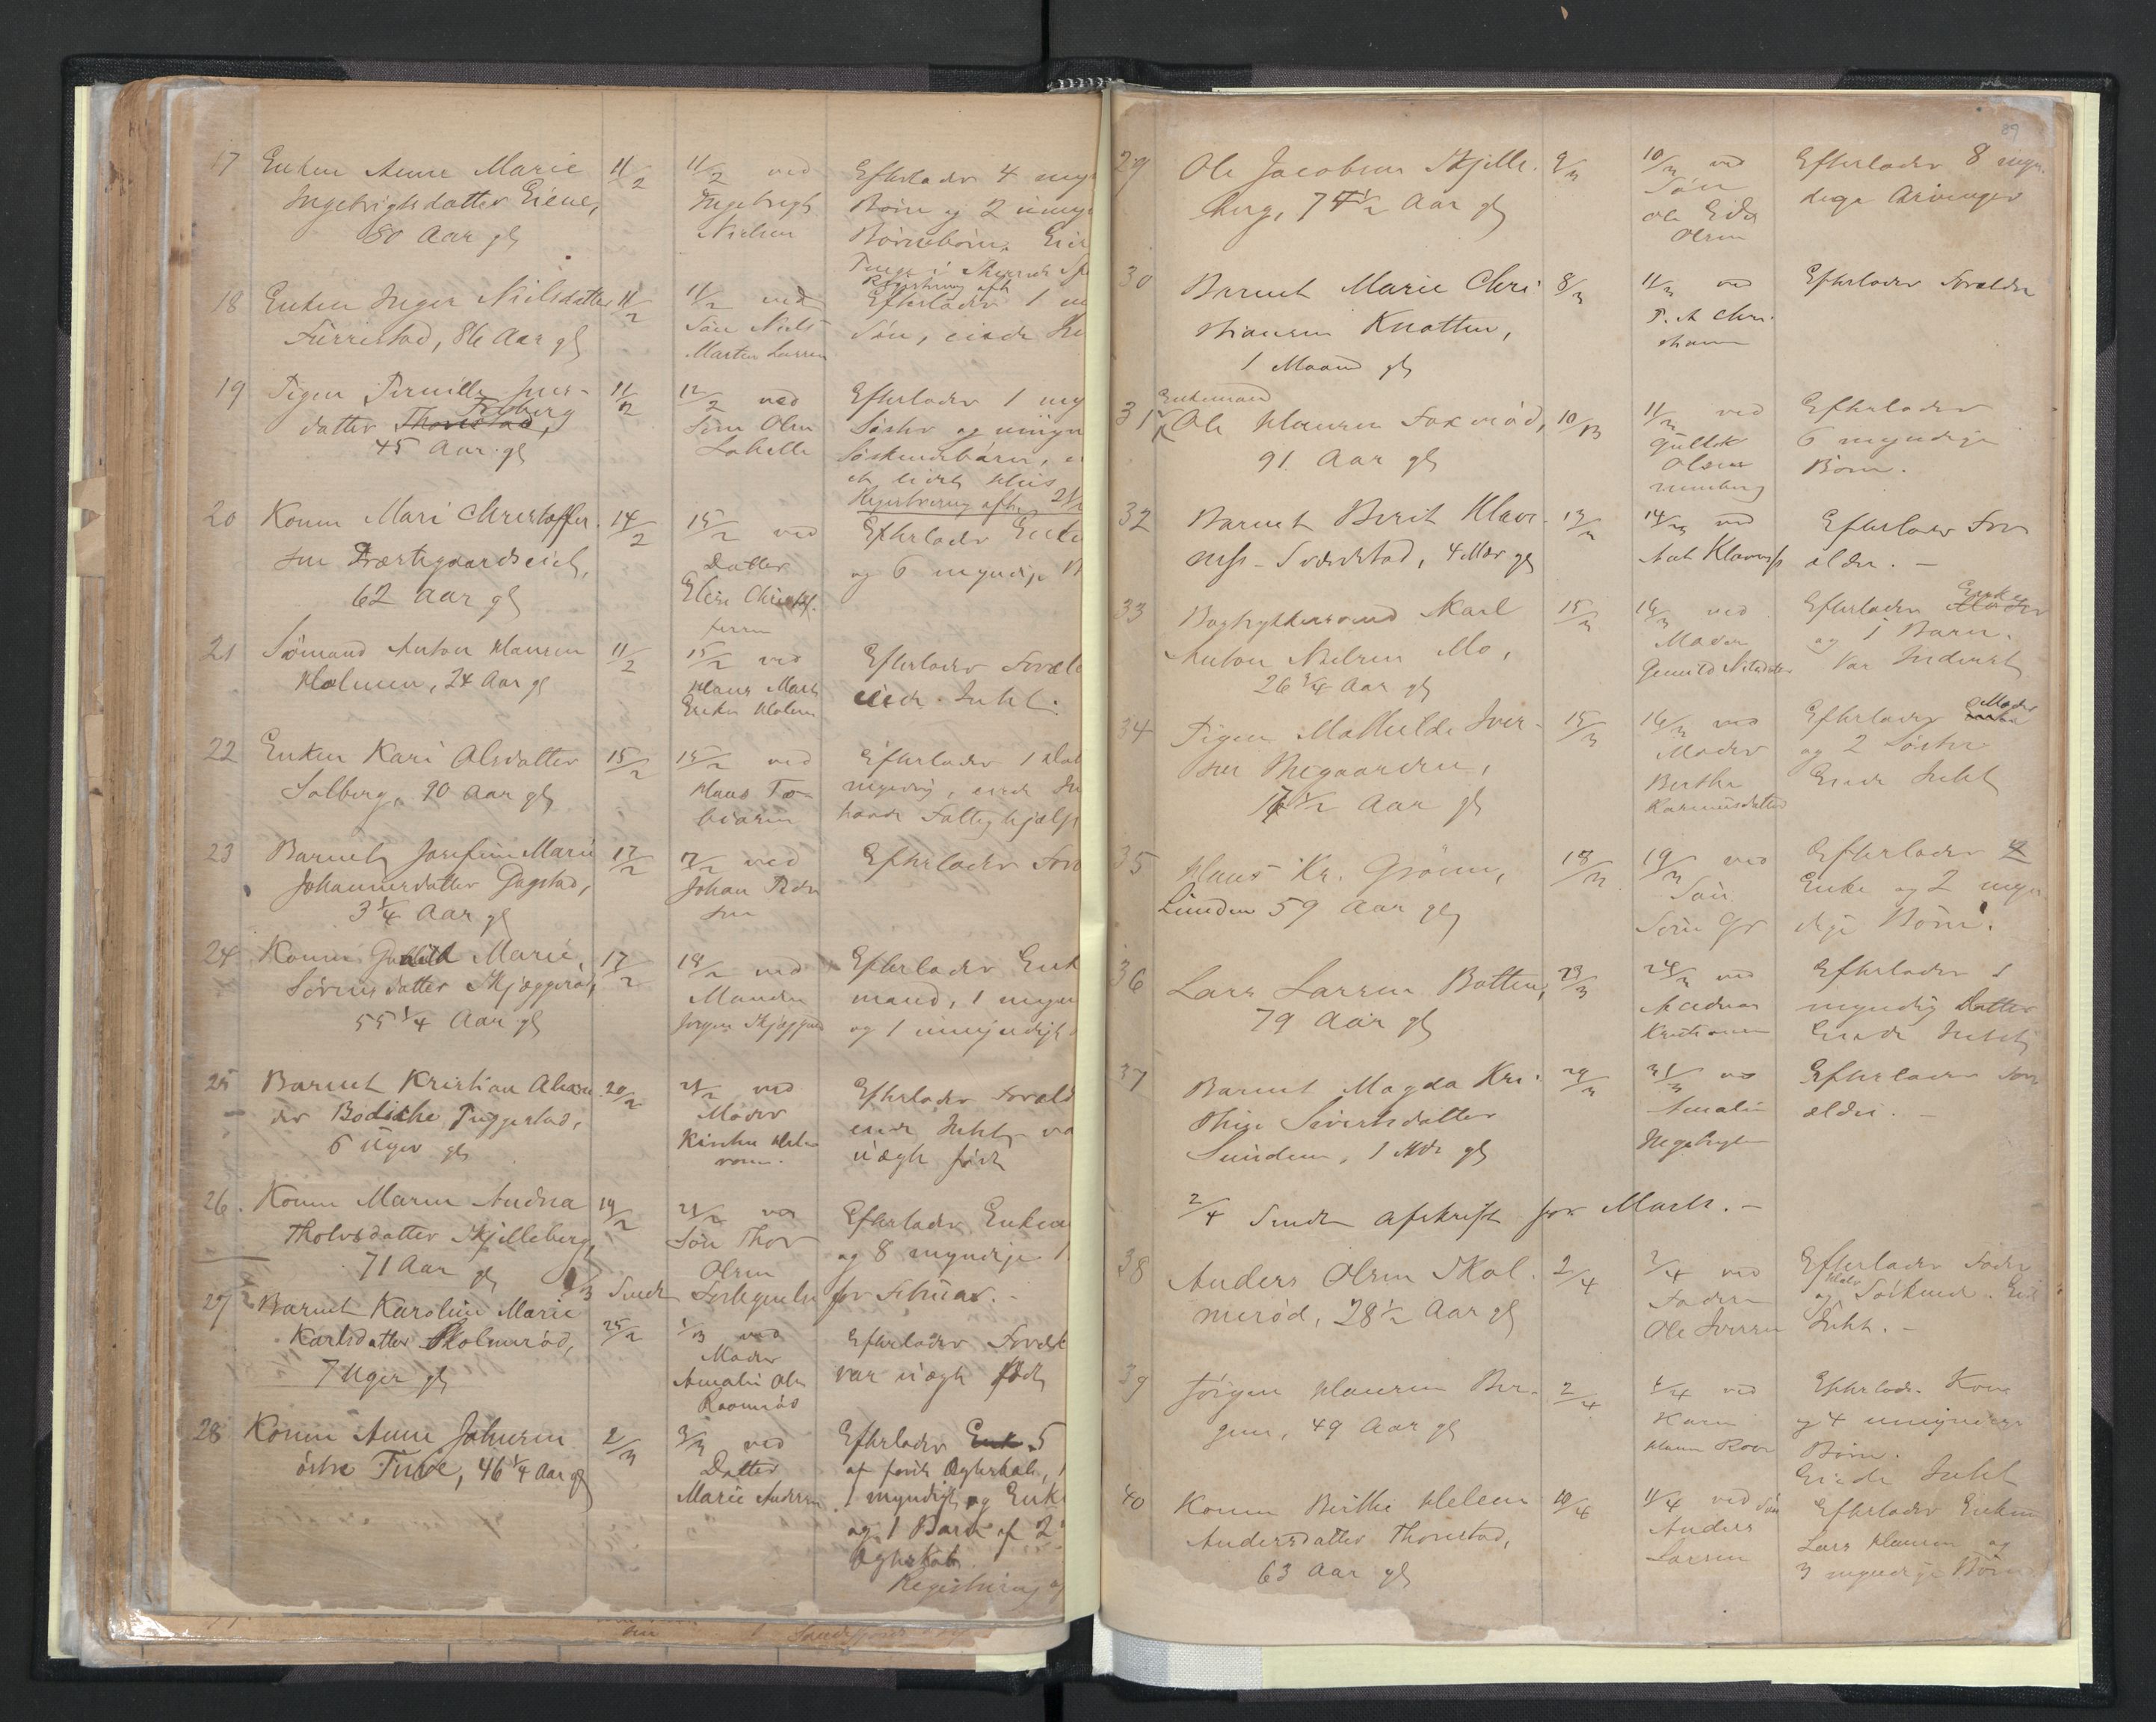 17 Enken Anne Marie 11/2 11/2 ved Efterlader 4 myn
Ingebrigtsdatter Eiene, Ingebrigt Børn og 2 umyn
80 Aar gl Nielsen Børnebørn.
18 Enken Inger Nielsdatter 11/2 11/2 ved Efterlader 1
Furrestad, 86 Aar gl Søn Niels Søn, eiede
Martin Larsen
19 Pigen Pernille 11/2 12/2 ved Efterlader 1 my
Foberg
datter Thorestad, Olsen Søster og umyn
45 Aar gl Søskendebørn,
Registrering afh.
20 Konen Mari Christoffer- 14/2 15/2 ved Efterlader Enke
sen Præstegaardseiet, Datter og 6 myndige
62 Aar gl Elise Christof-
fersen
21 Sømand Anton Hansen 11/2 15/2 ved Efterlader Foræld
Holmen, 24 Aar gl Hans Mart eiede Intet.
Holmen
22 Enken Kari Olsdatter 15/2 15/2 ved Efterlader 1 Dat
Solberg, 90 Aar gl Hans To- myndig, eiede In
biasen havde Fattighjælp
23 Barnet Josefine Marie 17/2 17/2 ved Efterlader For
Johannesdatter Gogstad, Johan Peder
3 1/4 Aar gl sen
24 Konen Gunhild Marie 17/2 18/2 ved Efterlader Enk
Sørensdatter Skjæggerød, Manden mand, 1 myn
55 1/4 Aar gl Jørgen og 1 umyndigt
25 Barnet Kristian Alexan 20/2 21/2 ved Efterlader Foræld
der Bodiche Puggestad, Moder eiede Intet
6 Uger gl uægte født
26 Konen Maren Andrea 19/2 21/2 ved Efterlader Enkem
Tholvsdatter Skjelleberg, Søn Thor og 8 myndige
71 Aar gl Olsen
1/3 Sendt Fortegnelse for Februar. -
27 Barnet Karoline Marie 25/2 1/3 ved Efterlader Foræld
Karlsdatter Skolmerød, Moder var uægte født
7 Uger gl Amalie Ols
28 Konen Anne Johnsen 2/3 3/3 ved Efterlader Enk 5
østre Tufte, 46 1/4 Aar gl Datter af første Ægteskab,
Marie Andersen 1 myndigt og Enke
og 1 Barn af 2
Ægteskab
Registrering
89
29 Ole Jacobsen Skjelle- 9/3 10/3 ved Efterlader 8 myn-
berg, 74 1/2 Aar gl Søn dige Arvinger
Ole Ede
Olsen
30 Barnet Marie Chri- 8/3 11/3 ved Efterlader Forældre
stiansen Knatten, P. A Chri-
1 Maaned gl stiansen
Enkemand
31 Ole Hansen Foxerød, 10/3 11/3 ved Efterlader
91 Aar gl Gullik 6 myndige
Olsen Børn.
32 Barnet Berit Klau- 13/3 14/3 ved Efterlader For-
4 Mdr gl ældre. -
33 Bogtrykkersvend Karl 15/3 16/3 ved Efterlader Enke
Anton Nielsen Mo, Moder og 1 Barn.
26 3/4 Aar gl Var Inderst
34 Pigen Mathilde Iver- 15/3 16/3 ved Efterlader Moder
sen Moder og 2 Søstre
1/2 Aar gl Berthe Eiede Intet
Rasmusdatter
35 Hans Kr. Grønn, 18/3 19/3 ved Efterlader
Lunden 59 Aar gl Søn Enke og 2 myn
Søren Gr dige Børn.
36 Lars Larsen Botten, 23/3 24/3 ved Efterlader 1
79 Aar gl Andreas myndig Datter
Kristiansen Eiede Intet
37 Barnet Magda Kri- 29/3 31/3 ved Efterlader For
stine Sivertsdatter Amalie ældre. -
Lunden, 1 Mdr gl
2/4 Sendt Afskrift for Marts. -
38 Anders Olsen Skol- 2/4 2/4 ved Efterlader Fader
merød, 28 1/2 Aar gl Faderen og Halv Søskende.
Ole Iversen Intet. -
39 Jørgen Hansen Ber- 2/4 4/4 ved Efterlader Kone
gene, 49 Aar gl og 4 umyndige
Børn.
Eiede Intet
40 Konen Berthe Helene 10/4 11/4 ved Søn Efterlader Enkem
Andersdatter Thorestad, Anders Lars Hansen og
63 Aar gl Larsen 3 myndige Børn